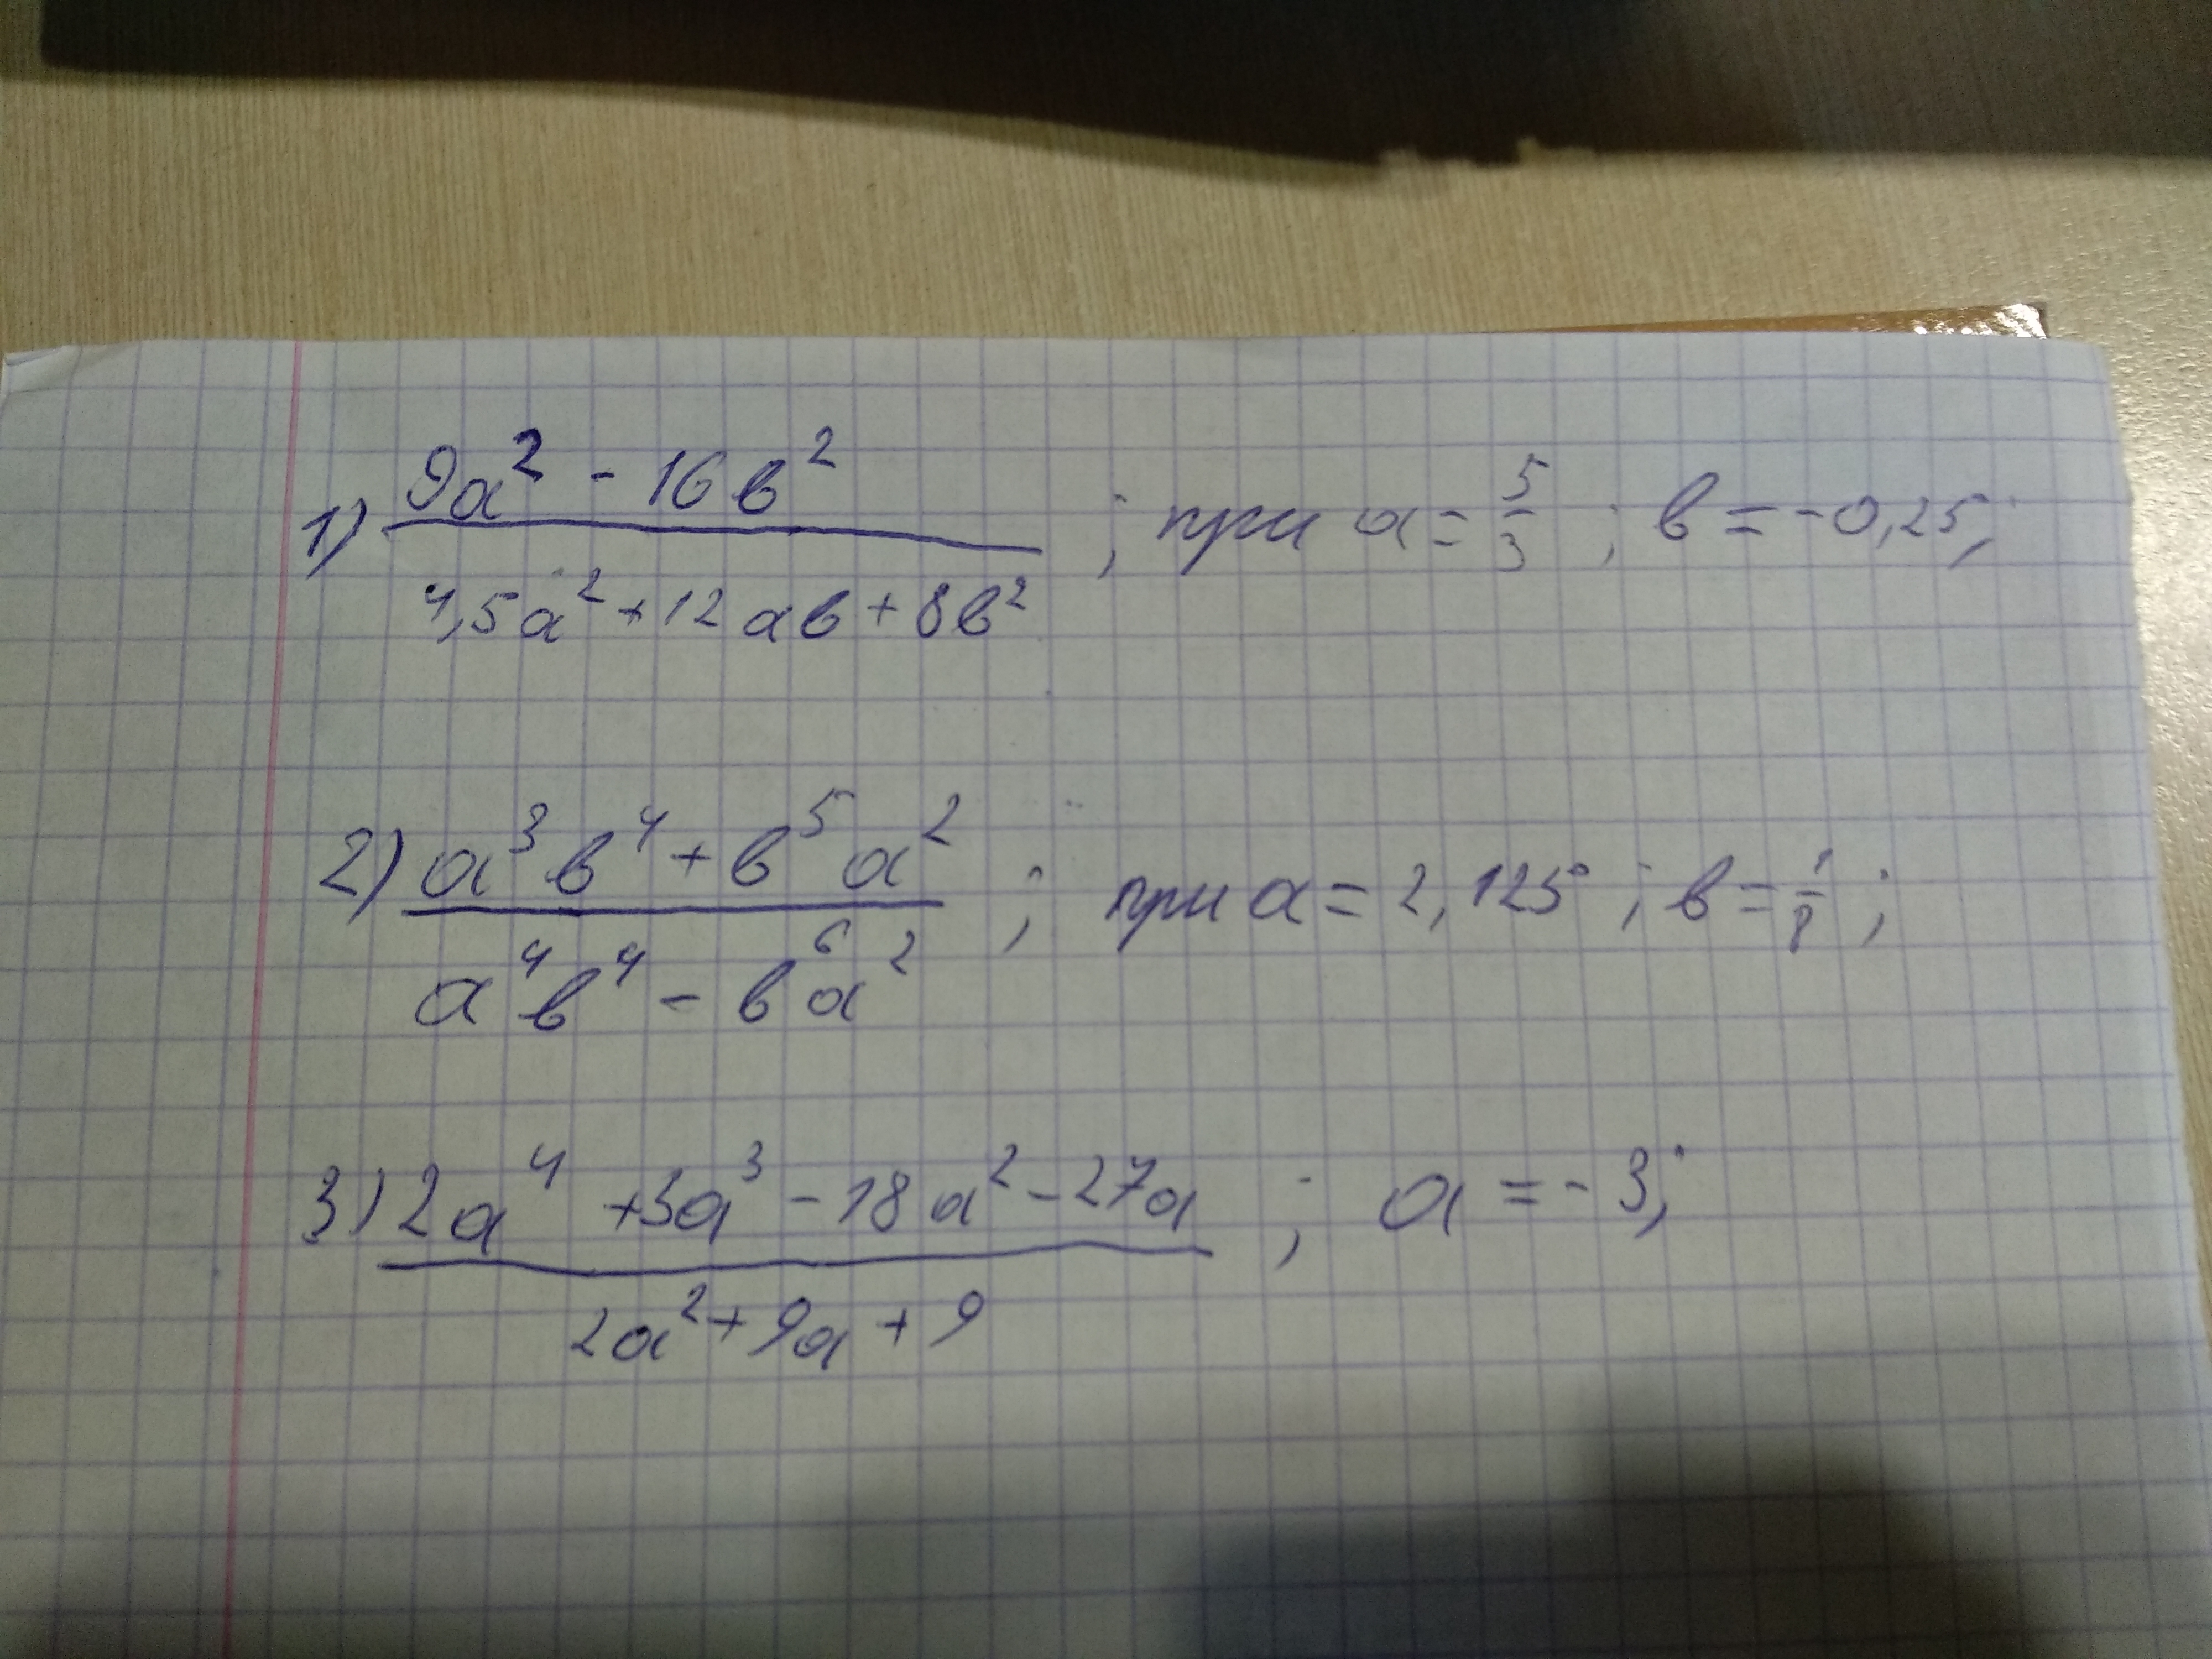 1) (9a² - 16в²) / (4,5a² + 12aв + 8в²) ; при a = 5/3 ; в = -0,25;
2) (a³в⁴ + в⁵a²) / (a⁴в⁴ - в⁶a²) ; при a = 2,125 ; в = 1/8 ;
3) (2a⁴ + 3a³ - 18a² - 27a) / (2a² + 9a + 9) ; a = -3;